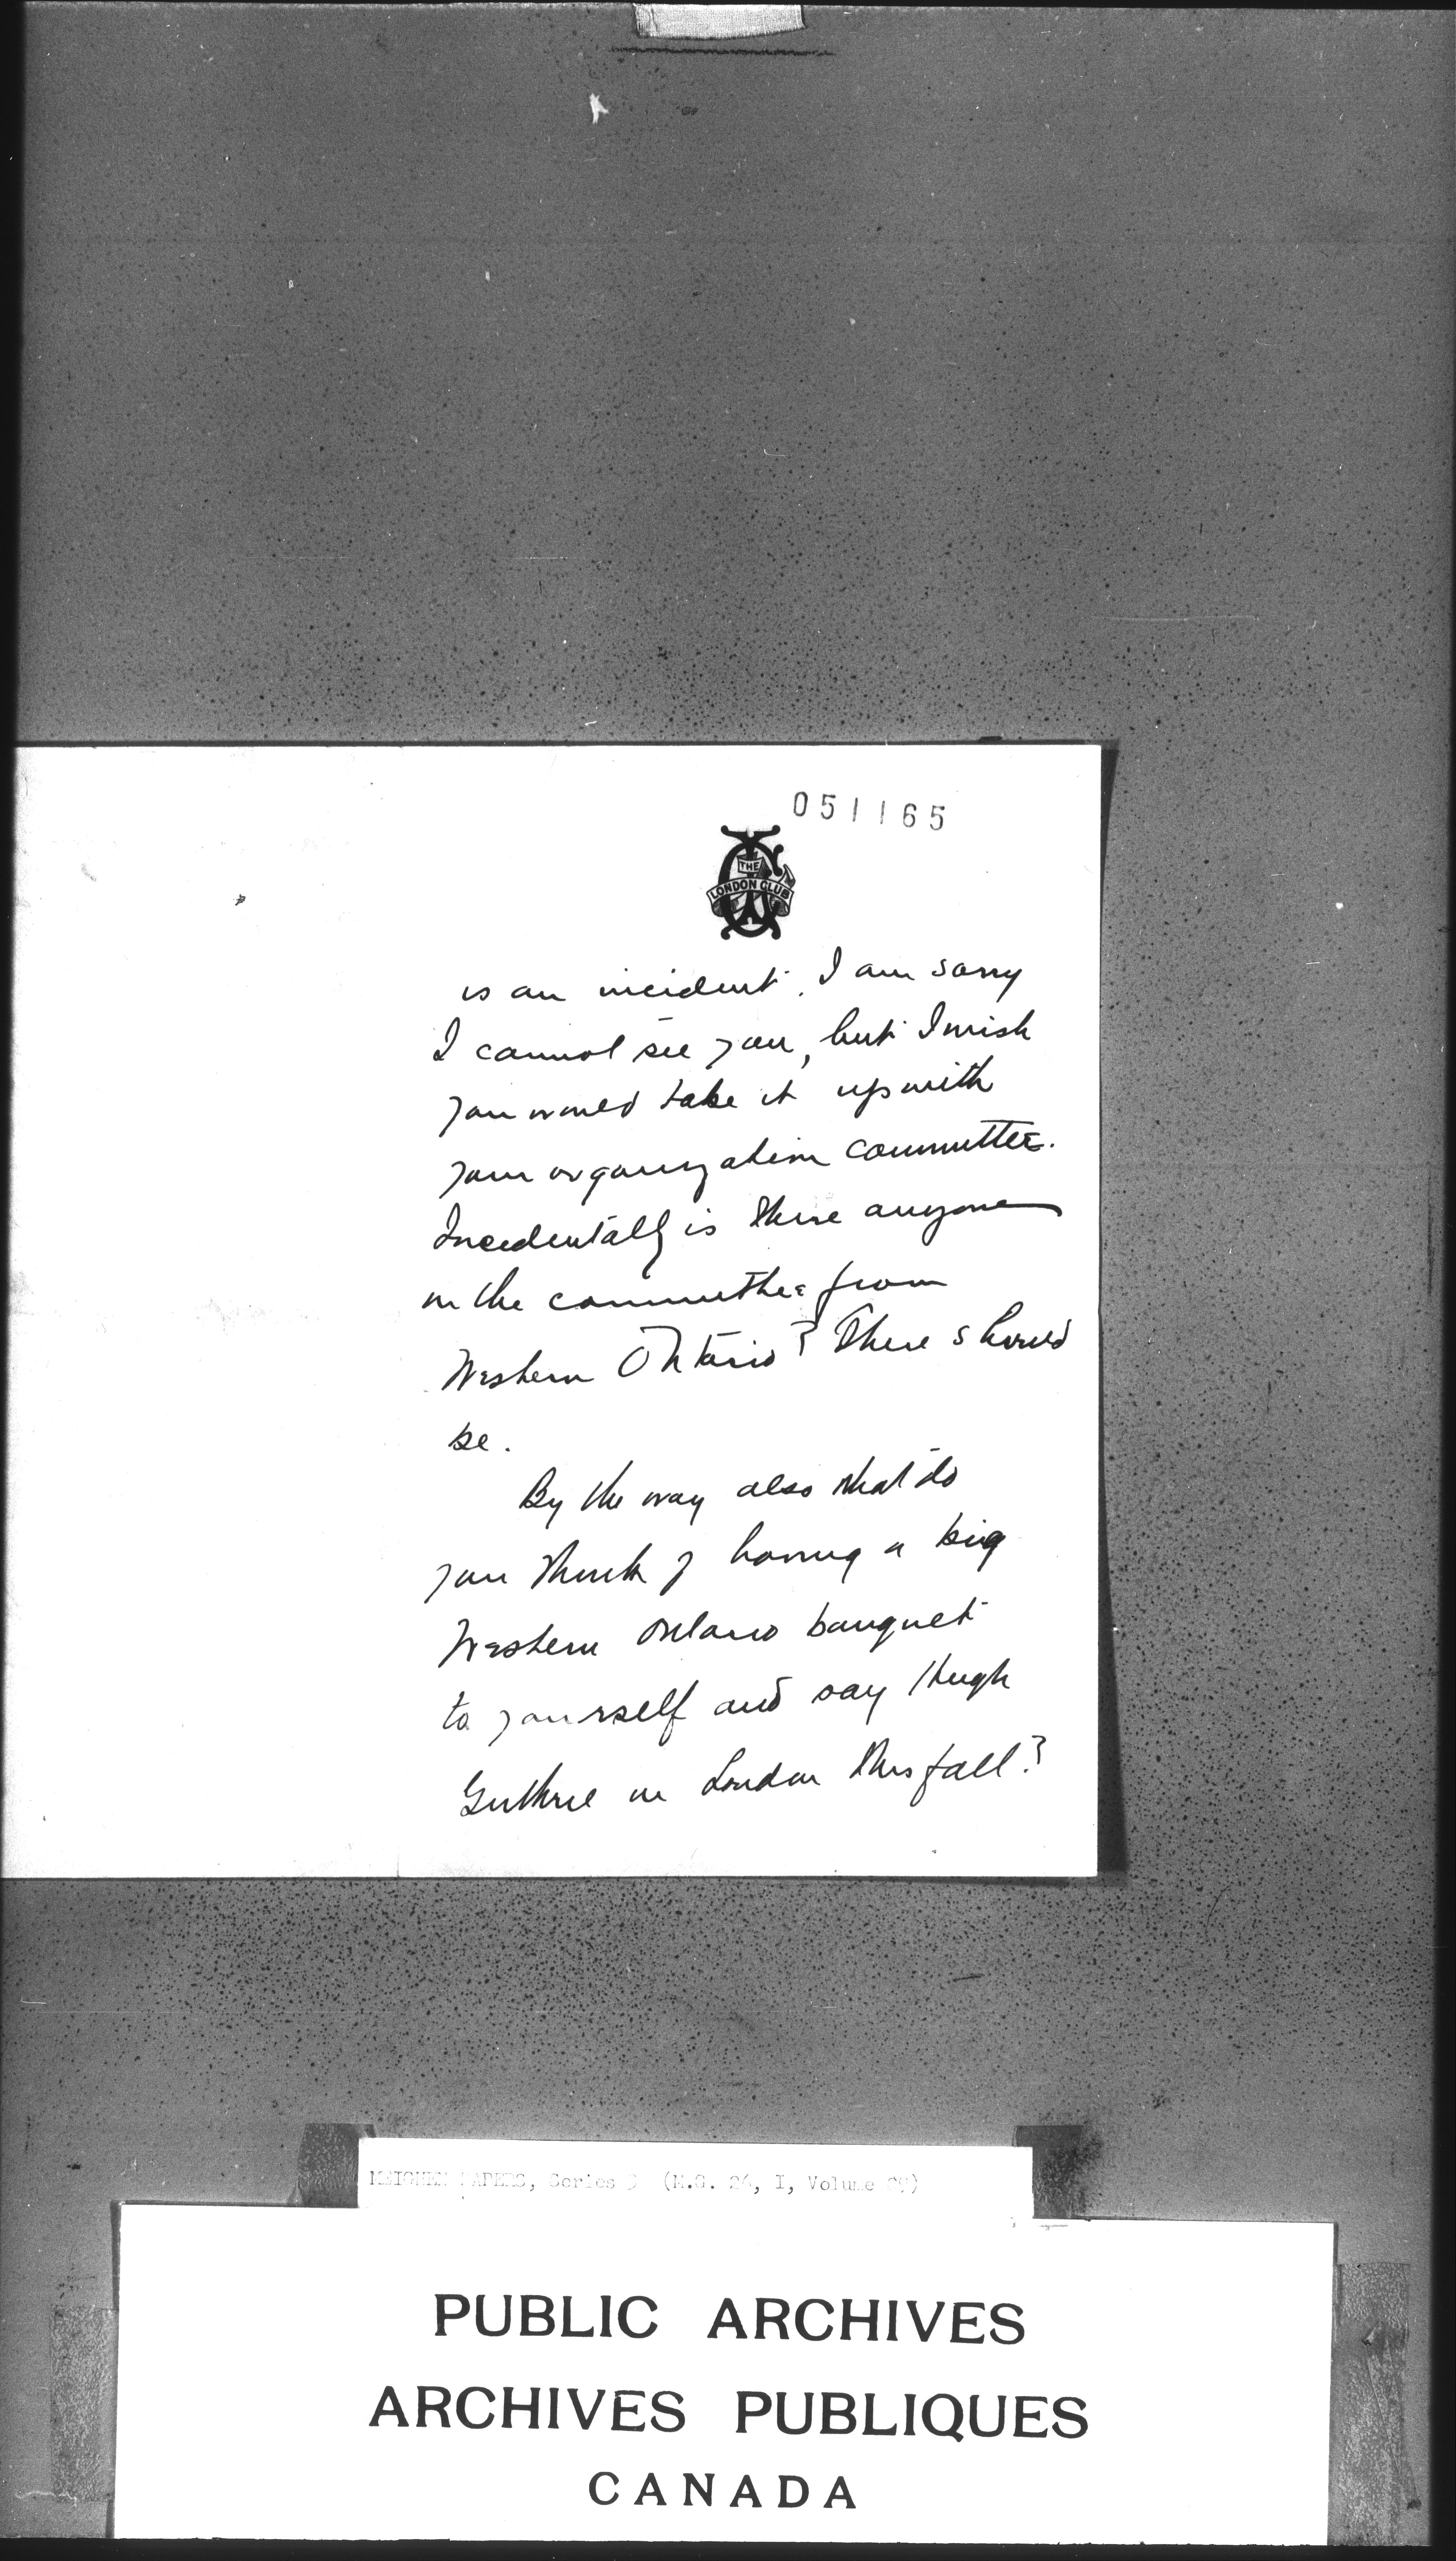 051165
THE
LONDON CLUB
is an incident. I am sorry
I cannot see you, but I wish
you would take it up with
your organization committee.
Incedentally is there anyone
on the committee from
Western Ontario? There should
be.
By the way also what do
you think of having a big
Western Ontario banquet
to yourself and say Hugh
Guthrie in London this fall?
MEIGHEN PAPERS, Series 3 (M.G. 26, I, Volume
PUBLIC ARCHIVES
ARCHIVES PUBLIQUES
CANADA